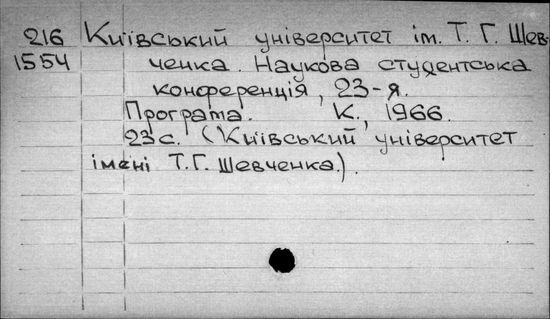 216 Київський університет ім. Т. Г. Шев-
1554 ченка. Наукова студентська
конференція, 23-я.
Програма. К., 1966.
23с. (Київський університет
імені Т.Г. Шевченка.).